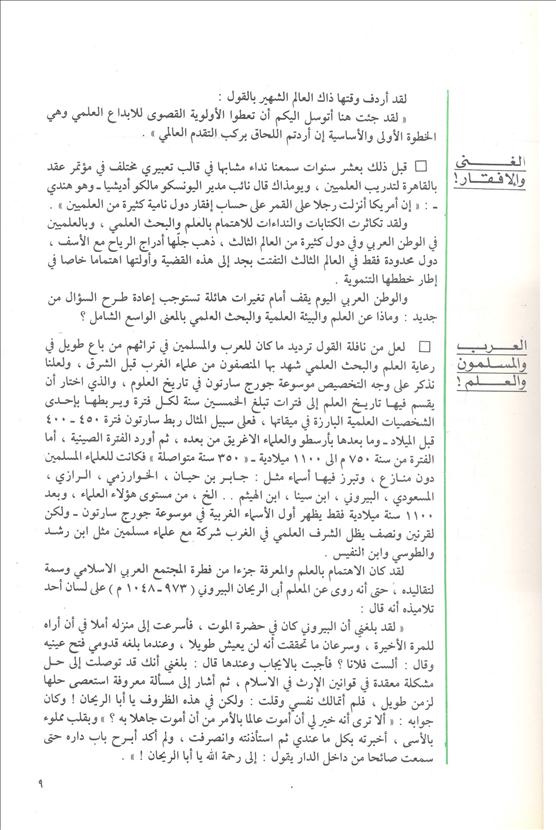 لقد أردف وقتها ذاك العالم الشهير بالقول :
« لقد جئت هنا أتوسل اليكم أن تعطوا الأولوية القصوى للابداع العلمي وهي
الخطوة الأولى والأساسية إن أردتم اللحاق بركب التقدم العالمي » .
الغنى
والافقار !
□ قبل ذلك بعشر سنوات سمعنا نداء مشابها في قالب تعبيري مختلف في مؤتمر عقد
بالقاهرة لتدريب العلميين ، ويومذاك قال نائب مدير اليونسكو مالكو أديشيا ـ وهو هندي
ـ : « إن أمريكا أنزلت رجلا على القمر على حساب إفقار دول نامية كثيرة من العلميين » .
ولقد تكاثرت الكتابات والنداءات للاهتمام بالعلم والبحث العلمي ، وبالعلميين
في الوطن العربي وفي دول كثيرة من العالم الثالث ، ذهب جلّها أدراج الرياح مع الأسف ،
دول محدودة فقط في العالم الثالث التفتت بجد إلى هذه القضية وأولتها اهتماما خاصا في
إطار خططها التنموية .
والوطن العربي اليوم يقف أمام تغيرات هائلة تستوجب إعادة طرح السؤال من
جديد : وماذا عن العلم والبيئة العلمية والبحث العلمي بالمعنى الواسع الشامل ؟
العرب
والمسلمون
والعلم !
□ لعل من نافلة القول ترديد ما كان للعرب والمسلمين في تراثهم من باع طويل في
رعاية العلم والبحث العلمي شهد بها المنصفون من علماء الغرب قبل الشرق ، ولعلنا
نذكر على وجه التخصيص موسوعة جورج سارتون في تاريخ العلوم ، والذي اختار أن
يقسم فيها تاريخ العلم إلى فترات تبلغ الخمسين سنة لكل فترة ويربطها بإحدى
الشخصيات العلمية البارزة في ميقاتها ، فعلى سبيل المثال ربط سارتون فترة ٤٥٠ ـ ٤٠٠
قبل الميلاد ـ وما بعدها بأرسطو والعلماء الاغريق من بعده ، ثم أورد الفترة الصينية ، أما
الفترة من سنة ٧٥٠ م الى ١١٠٠ ميلادية ـ « ٣٥٠ سنة متواصلة » فكانت للعلماء المسلمين
دون منازع ، وتبرز فيها أسماء مثل : جابر بن حيان ، الخوارزمي ، الرازي ،
المسعودي ، البيروني ، ابن سينا ، ابن الهيثم . . الخ ، من مستوى هؤلاء العلماء ، وبعد
١١٠٠ سنة ميلادية فقط يظهر أول الأسماء الغربية في موسوعة جورج سارتون ـ ولكن
لقرنين ونصف يظل الشرف العلمي في الغرب شركة مع علماء مسلمين مثل ابن رشد
والطوسي وابن النفيس .
لقد كان الاهتمام بالعلم والمعرفة جزءا من فطرة المجتمع العربي الاسلامي وسمة
لتقاليده ، حتى أنه روى عن المعلم أبى الريحان البيروني ( ٩٧٣ ـ ١٠٤٨ م ) على لسان أحد
تلاميذه أنه قال :
« لقد بلغني أن البيروني كان في حضرة الموت ، فأسرعت إلى منزله أملا في أن أراه
للمرة الأخيرة ، وسرعان ما تحققت أنه لن يعيش طويلا ، وعندما بلغه قدومي فتح عينيه
وقال : ألست فلانا ؟ فأجبت بالايجاب وعندها قال : بلغني أنك قد توصلت إلى حل
مشكلة معقدة في قوانين الإرث في الاسلام ، ثم أشار إلى مسألة معروفة استعصى حلها
لزمن طويل ، فلم أتمالك نفسي وقلت : ولكن في هذه الظروف يا أبا الريحان ! وكان
جوابه : « ألا ترى أنه خير لي أن أموت عالما بالأمر من أن أموت جاهلا به ؟ » وبقلب مملوء
بالأسى ، أخبرته بكل ما عندي ثم استأذنته وانصرفت ، ولم أكد أبرح باب داره حتى
سمعت صائحا من داخل الدار يقول : إلى رحمة الله يا أبا الريحان ! » .
٩